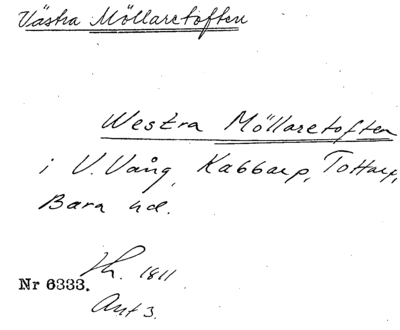 Västra Möllaretoften
Westra Möllaretoften
i V. Vång, Kabbarp, Tottarp,
Bara hd.
Lh. 1811
Nr 6333.
Akt 3.